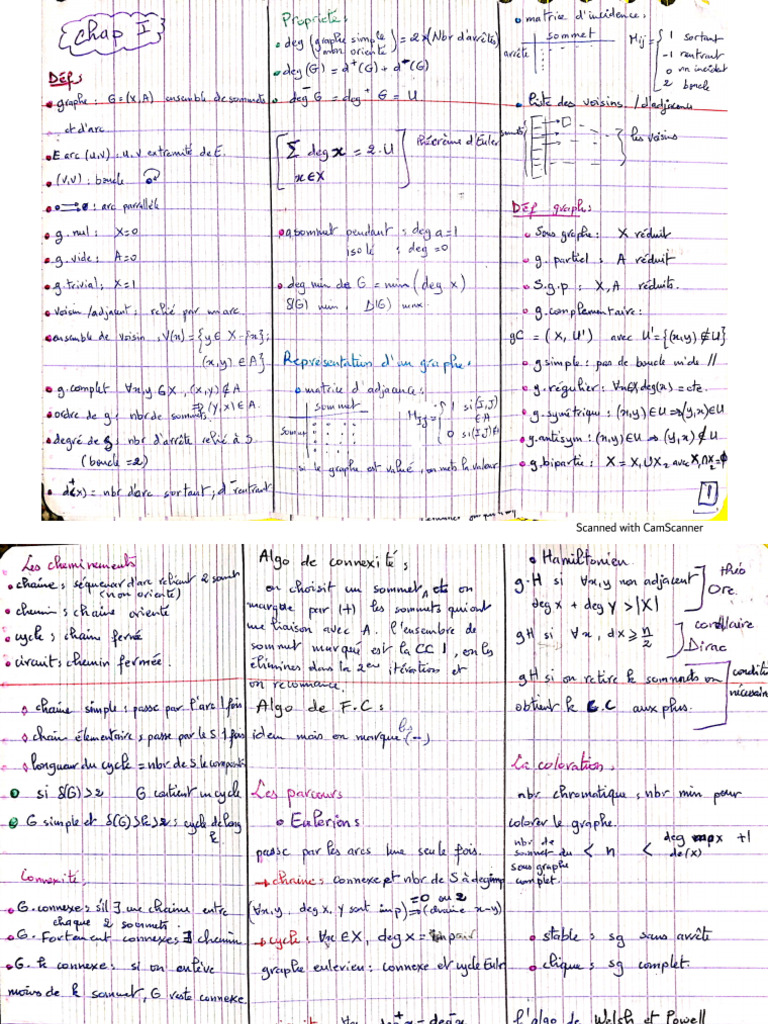 Chap I
Défs
• graphe : G=(X,A) ensemble de sommets
et d'arc
• E arc (u,v) : u,v extremité de E.
• (v,v) : boucle
• : arc parallèle
• g. nul : X=0
• g. vide : A=0
• g. trivial : X=1
• voisin /adjacent : relié par un arc
• ensemble de voisin : V(x) = {y ∈ X-{x} ;
(x,y) ∈ A}
• g. complet ∀x,y ∈ X, (x,y) ∉ A
⇒ (y,x) ∈ A.
• ordre de g : nbr de sommets
• degré de S : nbr d'arrête relié à S.
(boucle = 2)
• d⁺(x) = nbr d'arc sortant ; d⁻ rentrant
Propriétés :
• deg (graphe simple non orienté) = 2x(Nbr d'arrêtes)
• deg(G) = d⁺(G) + d⁻(G)
• deg⁻ G = deg⁺ G = U
[ Σ deg x = 2·U ] théorème d'Euler
x∈X
• a sommet pendant : deg a = 1
isolé : deg = 0
• deg min de G = min (deg x)
δ(G) min, Δ(G) max.
Représentation d'un graphe :
• matrice d'adjacance :
sommet
sommet
M ij = { 1 si (i,j) ∈ A
0 si (i,j) ∉
si le graphe est valué, on mets la valeur
• matrice d'incidence :
sommet
arrête
Mij = { 1 sortant
-1 rentrant
0 nn incident
2 boucle
• liste des voisins / d'adjacence
sommets
les voisins
Déf graph :
• Sous graphe : X réduit
• g. partiel : A réduit
• S.g.p : X,A réduits.
• g. complementaire :
gC = (X, U') avec U' = {(x,y) ∉ U}
• g simple : pas de boucle ni de //
• g. régulier : ∀x∈X deg(x) = cte.
• g. symétrique : (x,y) ∈ U ⇒ (y,x) ∈ U
• g. antisym : (x,y) ∈ U ⇒ (y,x) ∉ U
• g. bipartie : X = X₁ ∪ X₂ avec X₁ ∩ X₂ = ∅
1
Scanned with CamScanner
Les cheminements
• chaine : séquence d'arc reliant 2 somt
(non orienté)
• chemin : chaine oriente
• cycle : chaine fermé
• circuit : chemin fermée.
• chaine simple : passe par l'arc 1 fois
• chain élementaire : passe par le S 1 fois
• longueur du cycle = nbr de S le composant
• si δ(G) > 2 G contient un cycle
• G simple et δ(G) > k > 2 : cycle de long
k.
Connexité :
• G. connexe : s'il ∃ une chaine entre
chaque 2 sommets.
• G. Fortement connexe : ∃ chemin
• G. k connexe : si on enlève
moins de k sommet, G reste connexe
Algo de connexité :
on choisit un sommet A etc on
marque par (+) les sommets qui ont
une liaison avec A. l'ensemble de
sommet marqué est la CC 1, on les
élimines dans la 2em itération et
on recomance.
Algo de F.C :
idem mais on marque les (-)
Les parcours
• Euleriens
passe par les arcs une seule fois.
→ chaine : connexe et nbr de S à deg imp
= 0 ou 2
(∀x,y, deg x, y sont imp) ⇒ (chaine x-y)
→ cycle : ∀x ∈ X, deg x = pair
graphe eulerien : connexe et cycle Euler
∀x deg⁺ = deg⁻
• Hamiltonien
g.H si ∀x,y non adjacent
deg x + deg y > |X|
théo
Ore.
gH si ∀x, dx ≥ n/2
corollaire
Dirac
gH si on retire k sommets on
obtient k C.C aux plus.
condition
nécessaire
La coloration :
nbr chromatique : nbr min pour
colorer le graphe.
nbr de
sommet du
sous graphe
complet.
< n < deg max +1
de(x)
• stable : sg sans arrête
• clique : sg complet.
l'algo de Welsh et Powell